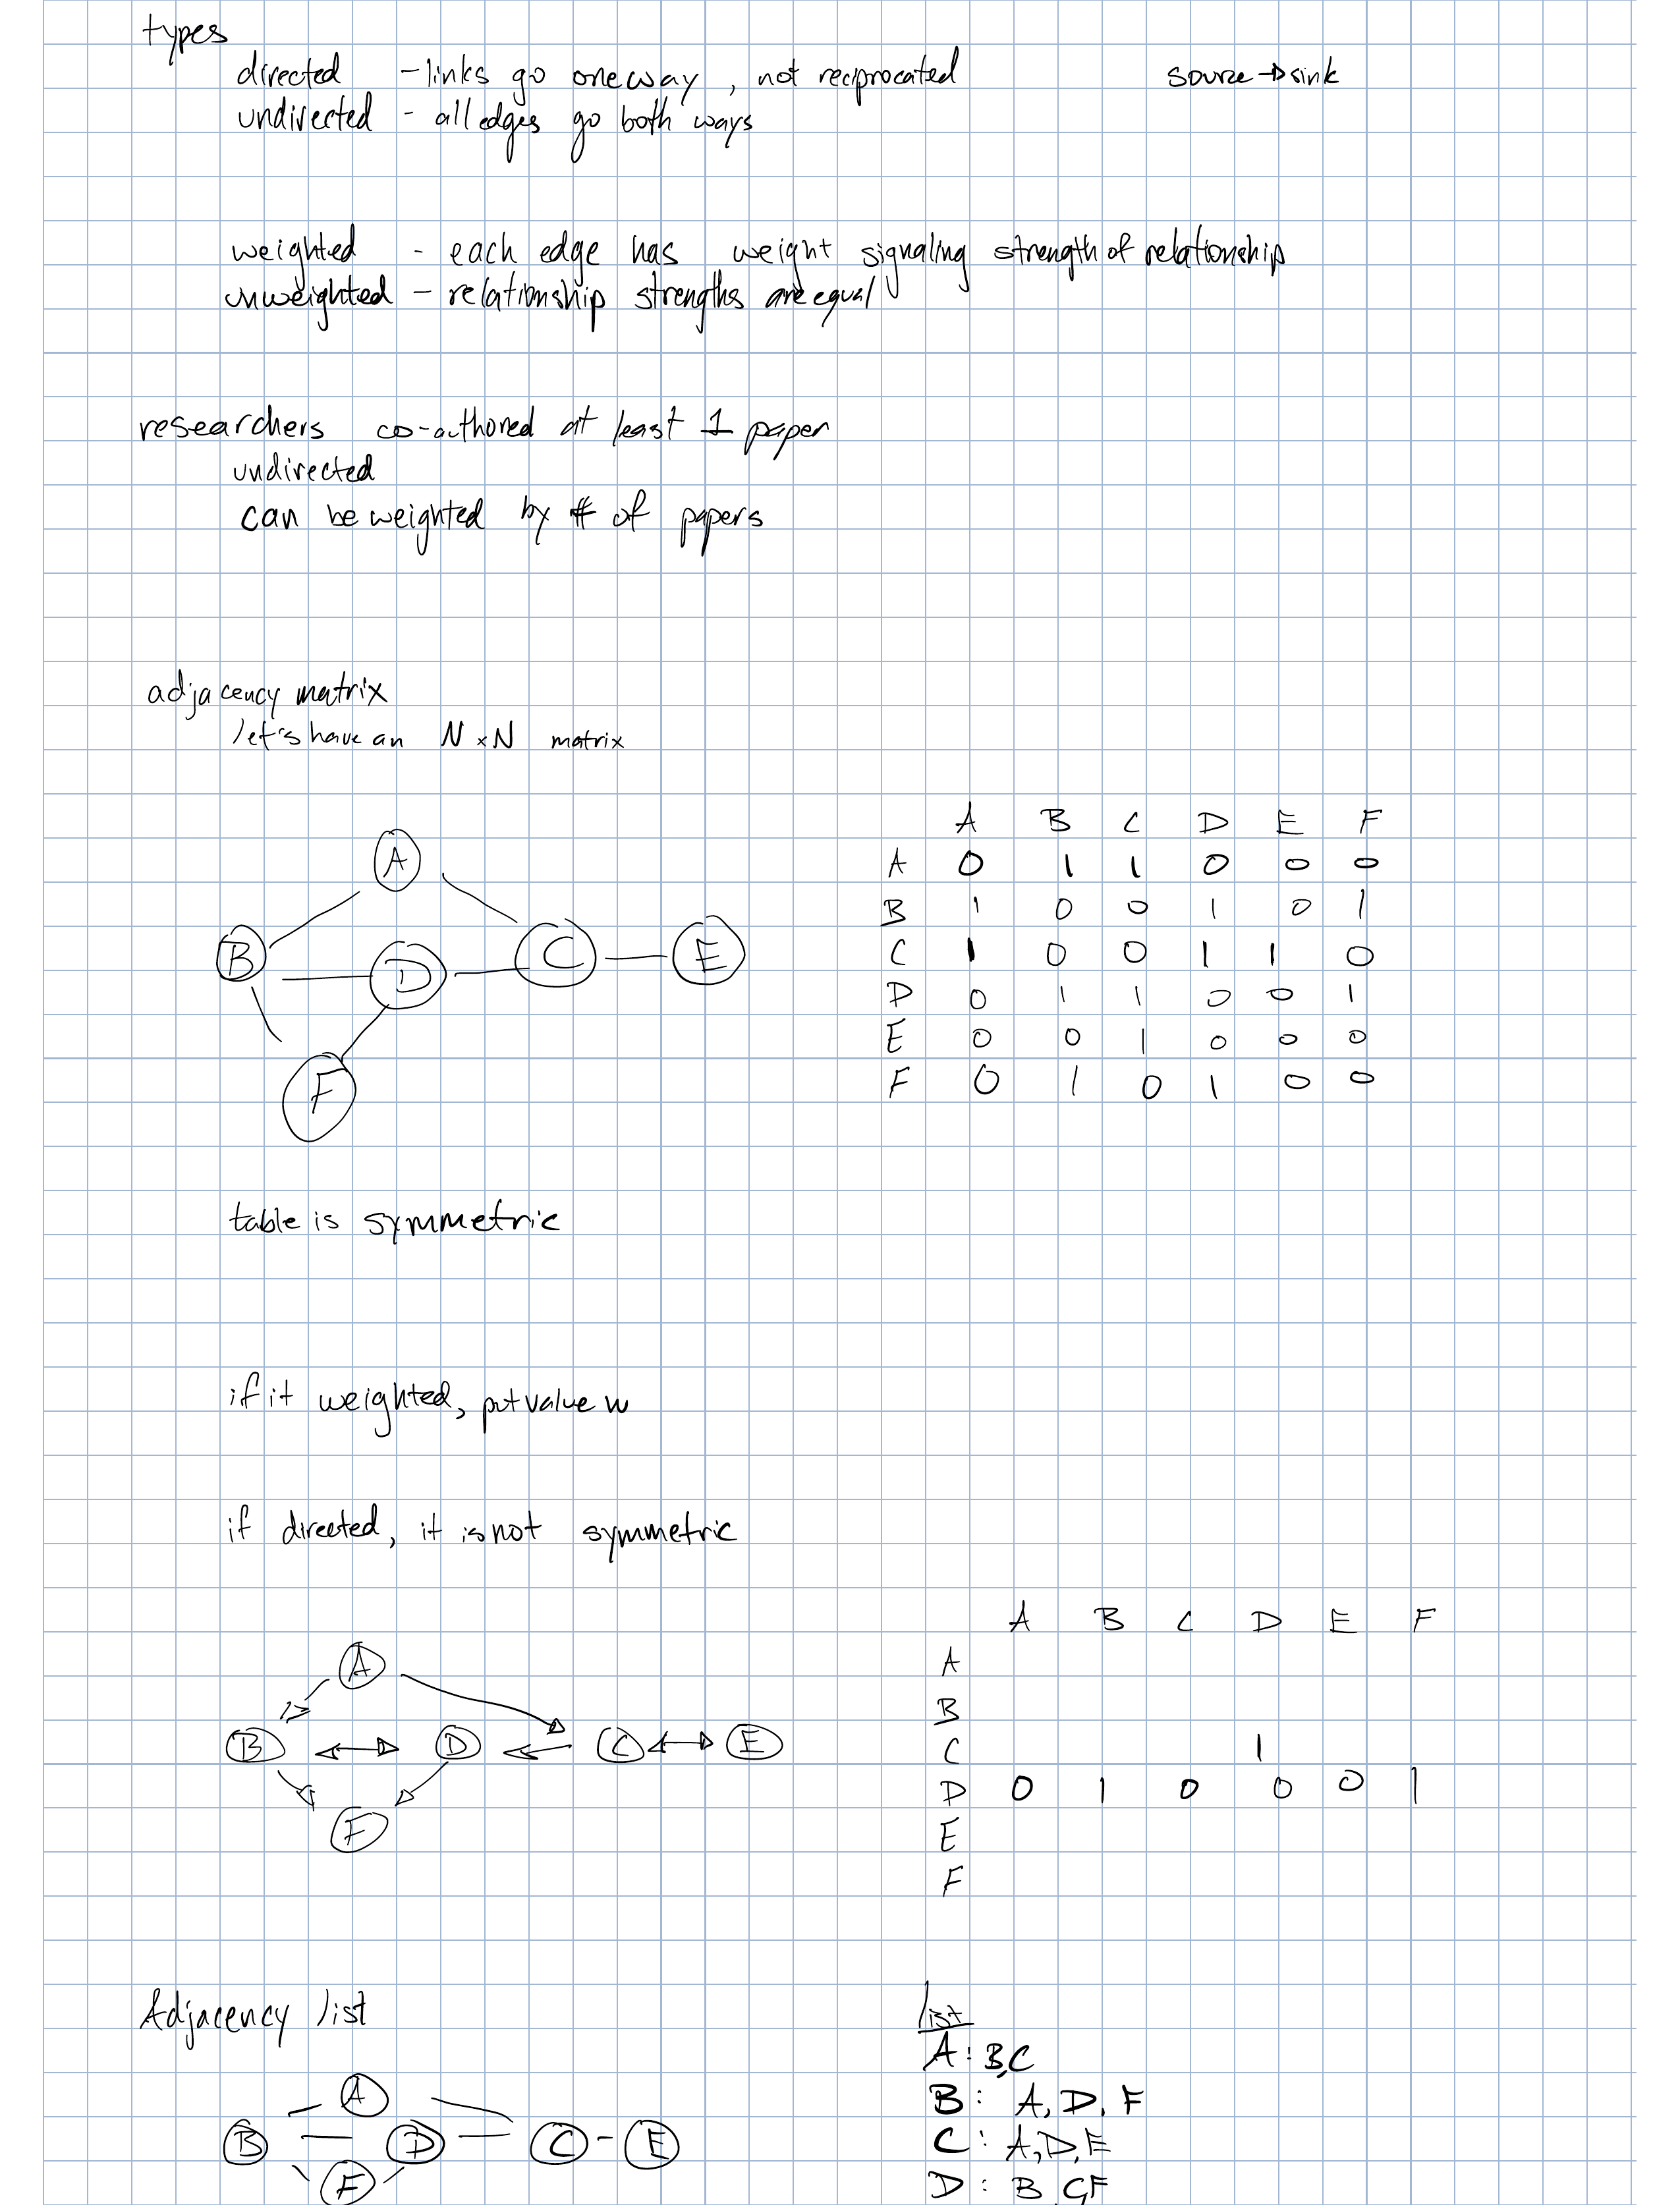 types
directed - links go one way, not reciprocated source → sink
undirected - all edges go both ways
weighted - each edge has weight signaling strength of relationship
unweighted - relationship strengths are equal
researchers co-authored at least 1 paper
undirected
can be weighted by # of papers
adjacency matrix
let's have an N x N matrix
A
B D C E
F
A B C D E F
A 0 1 1 0 0 0
B 1 0 0 1 0 1
C 1 0 0 1 1 0
D 0 1 1 0 0 1
E 0 0 1 0 0 0
F 0 1 0 1 0 0
table is symmetric
if it weighted, put value w
if directed, it is not symmetric
A
B D C E
F
A B C D E F
A
B
C 1
D 0 1 0 0 0 1
E
F
Adjacency list
A
B D C E
F
list
A: B,C
B: A, D, F
C: A,D,E
D: B,C,F